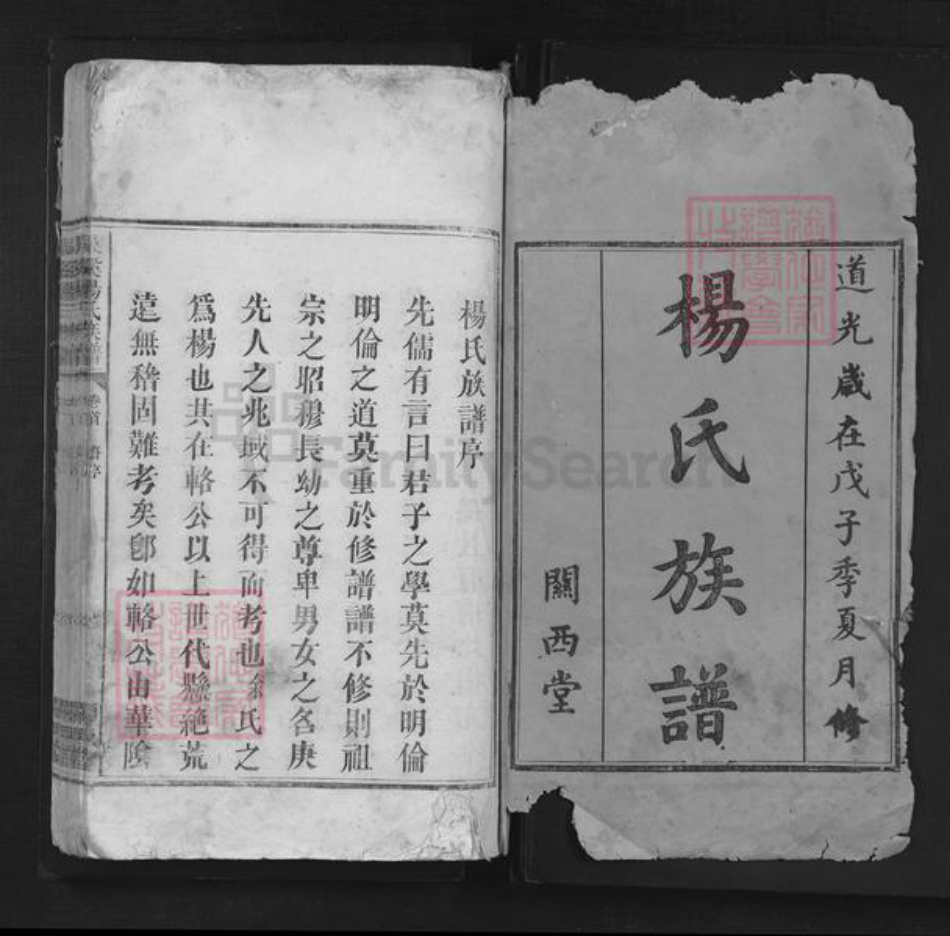 道光歲在戊子季夏月修
楊氏族譜
關西堂
楊氏族譜序
先儒有言曰君子之學莫先於明倫
明倫之道莫重於修譜譜不修則祖
宗之昭穆長幼之尊卑男女之名庚
先人之兆域不可得而考也余氏之
爲楊也其在輅公以上世代懸絶荒
遠無稽固難考矣卽如輅公由華陰
楊氏族譜 卷首 譜序
FamilySearch